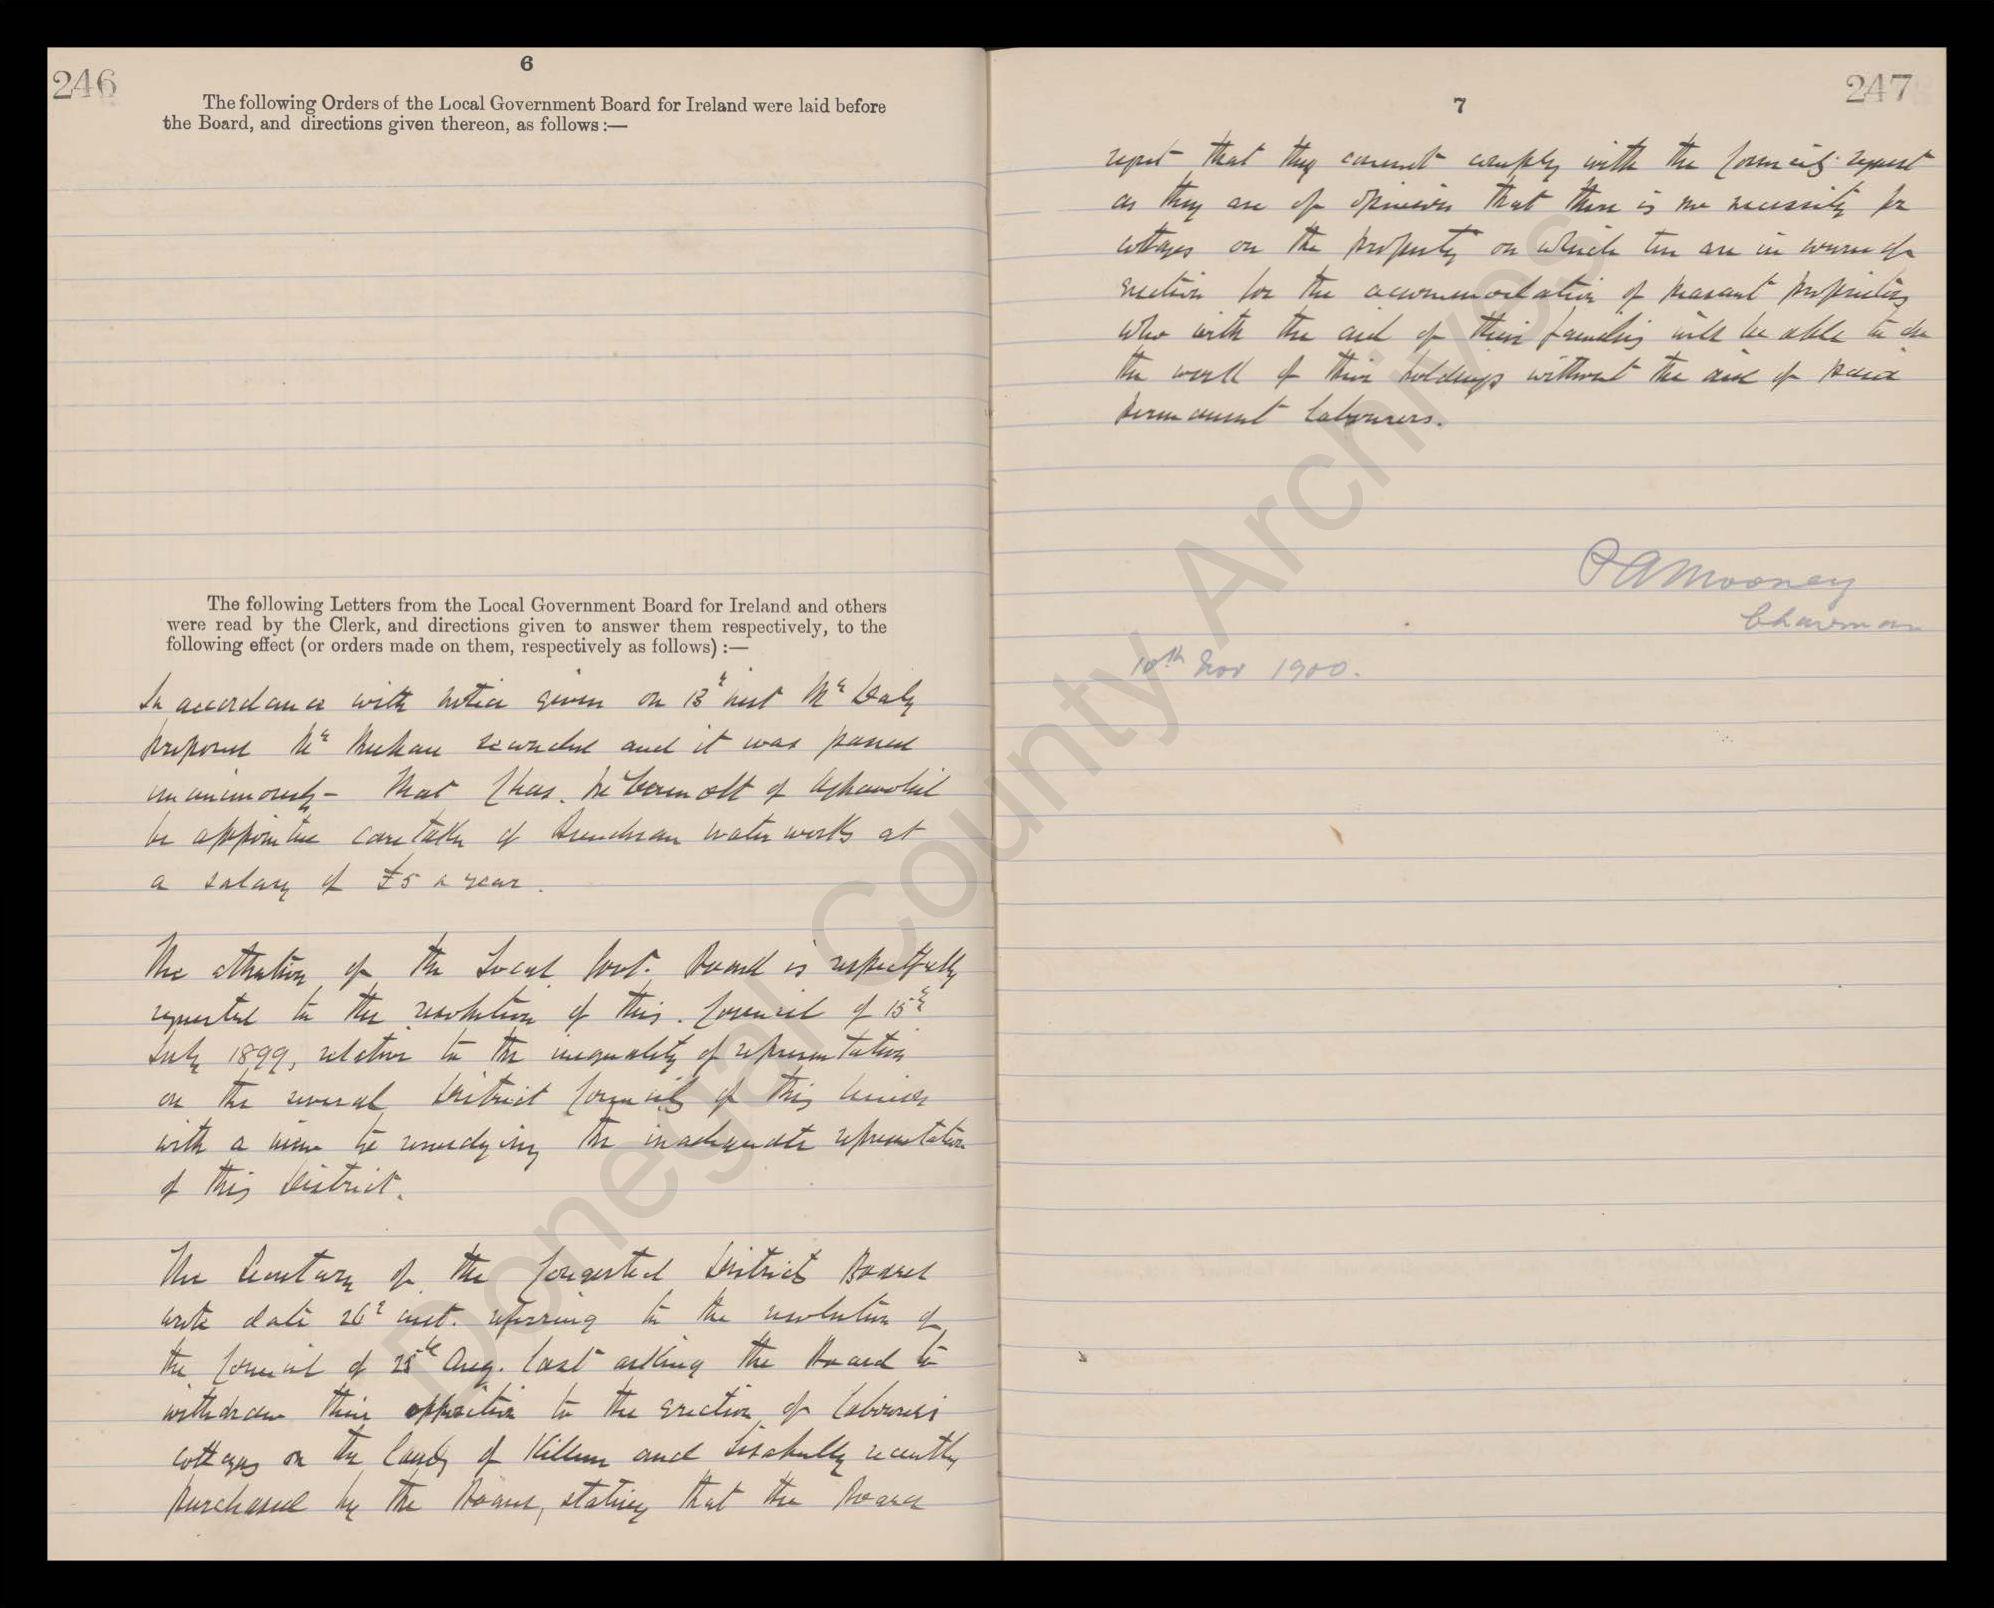 246
6
The following Orders of the Local Government Board for Ireland were laid before
the Board, and directions given thereon, as follows :—
The following Letters from the Local Government Board for Ireland and others
were read by the Clerk, and directions given to answer them respectively, to the
following effect (or orders made on them, respectively as follows) :—
In accordance with notice given on 13th inst Mr Daly
proposed Mr Meehan seconded and it was passed
unanimously – That Thos. McDermott of
be appointed caretaker of Bundoran water works at
a salary of £5 a year.
The attention of the Local Govt. Board is respectfully
requested to the resolution of this Council of 15th
July 1899, relative to the inequality of representation
on the several District Councils of this Union
with a view to remedying the inadequate representation
of this District.
The Secretary of the Congested Districts Board
wrote date 26th inst. referring to the resolution of
the Council of 25th Aug. last asking the Board to
withdraw their opposition to the erection of labourers
cottages on the lands of and recently
purchased by the Board, stating that the Board
247
7
regret that they cannot comply with the Councils request
as they are of opinion that there is no necessity for
cottages on the property on which ten are in course of
erection for the accommodation of peasant proprietors
who with the aid of their families will be able to do
the work of their holdings without the aid of paid
permanent labourers.
P A Mooney
Chairman
10th Nov 1900.
Donegal County Archives